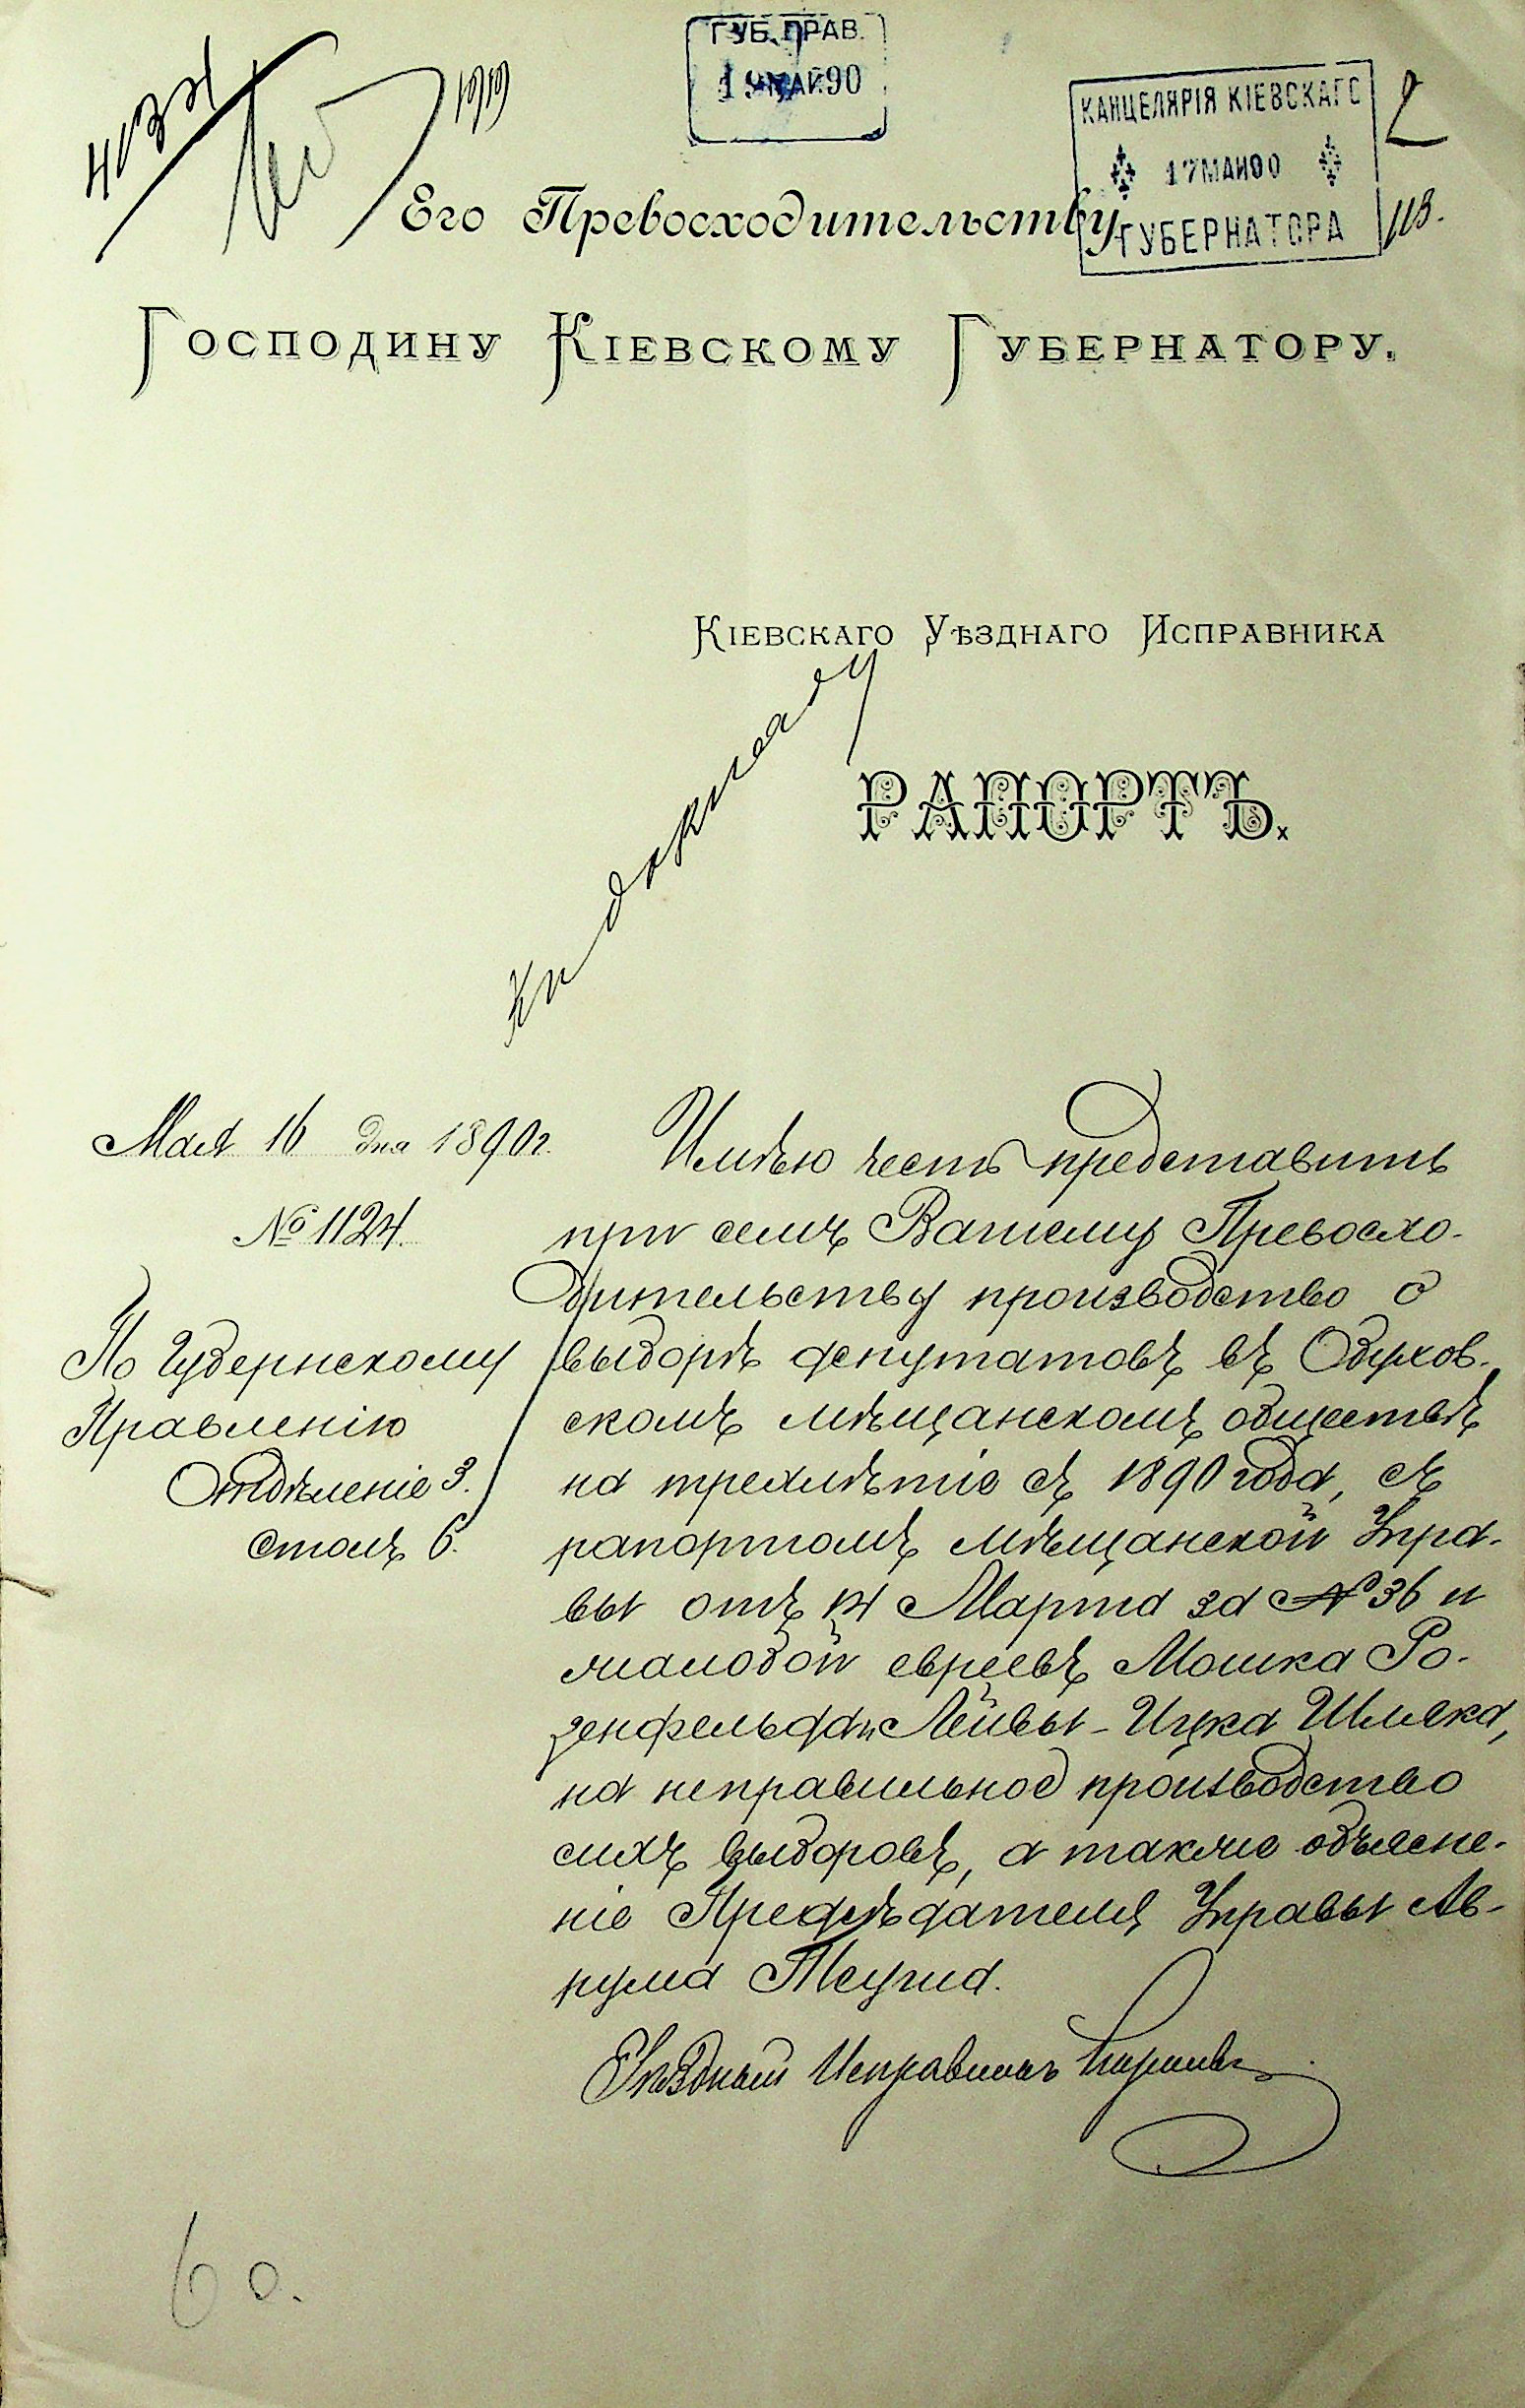 ГУБ. ПРАВ.
19 МАЙ 90
КАНЦЕЛЯРІЯ КІЕВСКАГО
17 МАЯ 90
ГУБЕРНАТОРА
2
Его Превосходительству
Господину Кіевскому Губернатору.
Кіевскаго Уѣзднаго Исправника
РАПОРТЪ.
Къ докладу
Мая 16 дня 1890 г.
№ 1124.
По Губернскому
Правленію
Отдѣленіе 3.
Столъ 6.
Имѣю честь представить
при семъ Вашему Превосхо-
дительству производство о
выборѣ депутатовъ въ Обухов-
скомъ мѣщанскомъ обществѣ
на трехлѣтіе съ 1890 года, съ
рапортомъ мѣщанской Упра-
вы отъ 14 Марта за № 36 и
жалобой евреевъ Мошка Ро-
зенфельда и Лейвы-Ицка Шмека,
на неправильное производство
сихъ выборовъ, а также объясне-
ніе Предсѣдателя Управы Ав-
рума
Уѣздный Исправникъ
60.